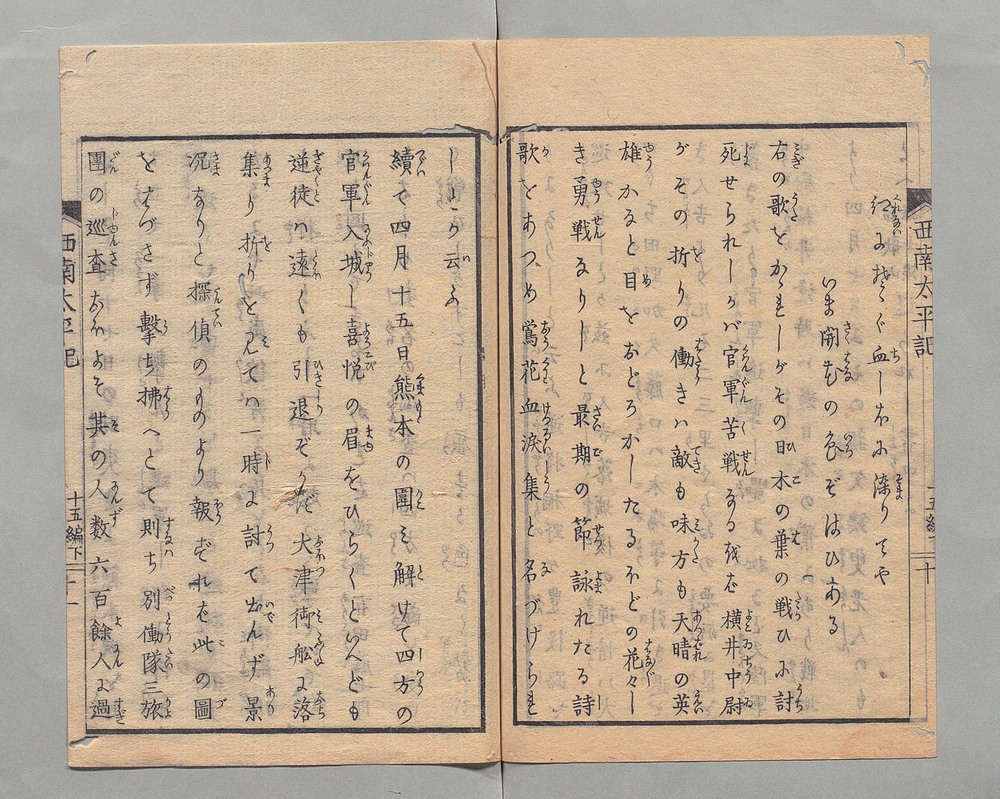 紅ゐにそゝぐ血しほに染りてや
いま開花の色ぞはひある
右の歌をかれしがその日木の葉の戦ひに討
死せられしかバ官軍苦戦なるをば横井中尉
がその折りの働きハ敵も味方も天晴の英
雄かなと目をおどろかしたるほどの花々し
き勇戦なりしと最期の節詠れたる詩
歌をあつめ鶯花血涙集と名づけられ
しとか云ふ
續て四月十五日熊本の圍み解けて四方の
官軍入城し喜悦の眉をひらくといへども
逆徒ハ遠くも引退ぞかで大津御舩に落
集り折りをみてハ一時に討て出んず景
况なりと探偵のものより報ずれば此の圖
をはづさず擊ち拂へとて則ち別働隊三旅
團の巡査およそ其の人数六百餘人は過
西南太平記
十五編下
十
西南太平記
十五編下
十一